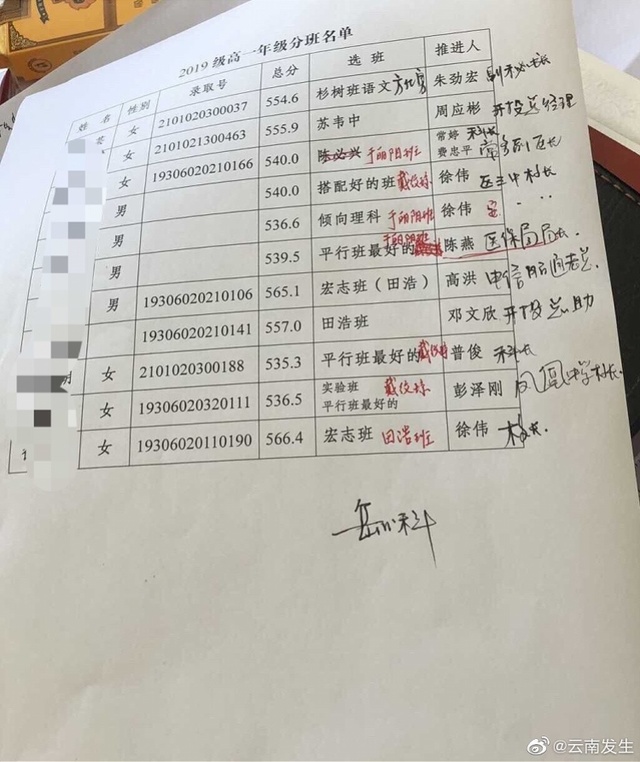 2019级高一年级分班名单
姓名 性别 录取号 总分 选班 推进人
女 2101020300037 554.6 杉树班语文 朱劲宏 副秘书长
女 2101021300463 555.9 苏韦中 周应彬 开投总经理
女 19306020210166 540.0 陈必兴 于丽阳班 常婷 科长 费忠平 副区长
男 540.0 搭配好的班 戴仪琼 徐伟 区三中校长
男 536.6 倾向理科 于丽阳班 徐伟
539.5 平行班最好的 于丽阳班 陈燕 医保局局长
男 19306020210106 565.1 宏志班（田浩） 高洪 电信昭通老总
19306020210141 557.0 田浩班 邓文欣 开投总助
女 2101020300188 535.3 平行班最好的 戴仪琼 普俊 科长
女 19306020320111 536.5 实验班 平行班最好的 戴仪琼 彭泽刚 凤凰中学校长
女 19306020110190 566.4 宏志班 田浩班 徐伟 校长
@云南发生